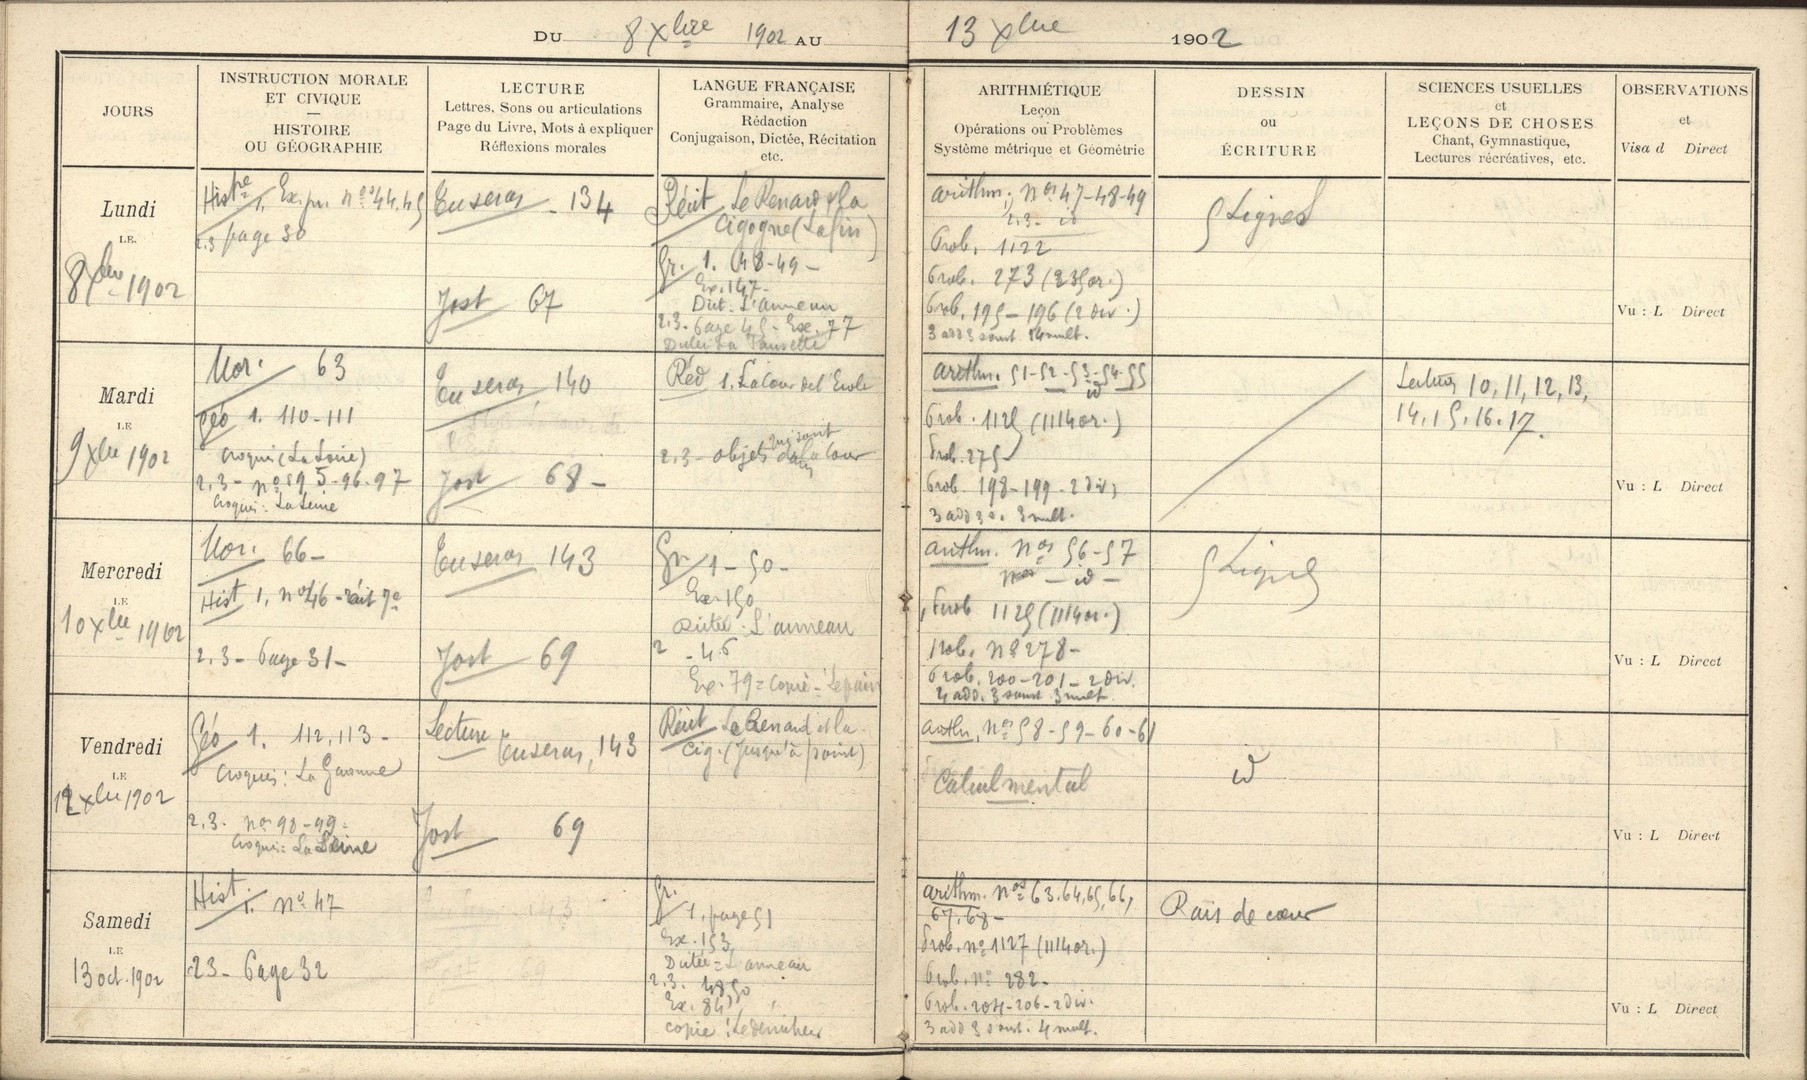 DU 8 Xbre 1902 AU 13 Xbre 1902
JOURS
INSTRUCTION MORALE
ET CIVIQUE
—
HISTOIRE
OU GÉOGRAPHIE
LECTURE
Lettres, Sons ou articulations
Page du Livre, Mots à expliquer
Réflexions morales
LANGUE FRANÇAISE
Grammaire, Analyse
Rédaction
Conjugaison, Dictée, Récitation
etc.
ARITHMÉTIQUE
Leçon
Opérations ou Problèmes
Système métrique et Géométrie
DESSIN
ou
ÉCRITURE
SCIENCES USUELLES
et
LEÇONS DE CHOSES
Chant, Gymnastique,
Lectures récréatives, etc.
OBSERVATIONS
et
Visa d Direct
Lundi
LE
8 Xbre 1902
Histre 1. Ex. pr. nos 44.45
2.3 page 30
Tu seras - 134
Jost 67
Récit Le Renard et la
Cigogne (La fin)
Gr. 1. 48-49 -
Ex. 147-
Dict. L'anneau
2.3 - Page 45 - Ex. 77
arithm; nos 47-48-49
2.3 - id
Prob. 1122
Prob. 273 (235 or.)
Prob. 195-196 (2 div.)
3 add 3 soust 4 mult.
5 Lignes
Vu : L Direct
Mardi
LE
9 Xbre 1902
Mor. 63
Géo 1. 110-111
croquis (La Loire)
2,3 - nos 95-96-97
Croquis : La Seine
Tu seras, 140
Jost 68 -
Réd 1. La Cour de l'Ecole
2,3 - objets qui sont
dans la Cour
arithm. 51-52-53-54-55
id
Prob. 1125 (1114 or.)
Prob. 275
Prob. 198-199-2 div;
3 add 3 s. 3 mult.
Lectures 10, 11, 12, 13,
14, 15, 16, 17.
Vu : L Direct
Mercredi
LE
10 Xbre 1902
Mor. 66 -
Hist 1. no 46 - récit 7e
2,3 - Page 31 -
Tu seras 143
Jost 69
Gr. 1 - 50 -
Ex. 150
Dictée - L'anneau
2 - 46
Ex. 79 = Copie - Le pain
arithm. nos 56-57
— id —
Prob 1125 (1114 or.)
Prob. No 278 -
Prob. 200-201 - 2 div.
4 add. 3 soust. 3 mult.
5 Lignes
Vu : L Direct
Vendredi
LE
12 Xbre 1902
Géo 1. 112, 113 -
Croquis : La Garonne
2,3. nos 98-99 =
Croquis : La Seine
Lecture Tu seras, 143
Jost 69
Récit Le Renard et la
Cig. (Jusqu'à point)
arithm, Nos 58-59-60-61
Calcul mental
id
Vu : L Direct
Samedi
LE
13 oct. 1902
Hist. 1. No 47
23 - Page 32
Gr.
1. page 51
Ex. 153
Dictée = L'anneau
2.3. 48 50
Ex. 84
copie : Le dénicheur
arithm. nos 63.64,65,66,
67,68 -
Prob. no 1127 (1114 or.)
Prob. No 282.
Prob. 204-206-2 div.
3 add 3 soust. 4 mult.
Rais de cœur
Vu : L Direct